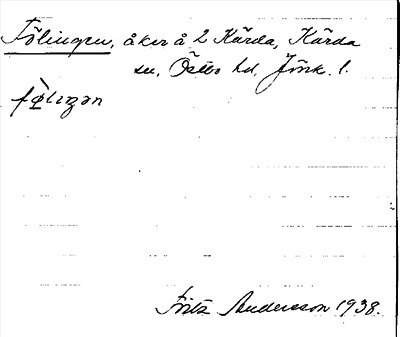 Fölingen, åker å 2 Kärda, Kärda
sn, Östbo hd, Jönk. l.
Fritz Andersson 1938.